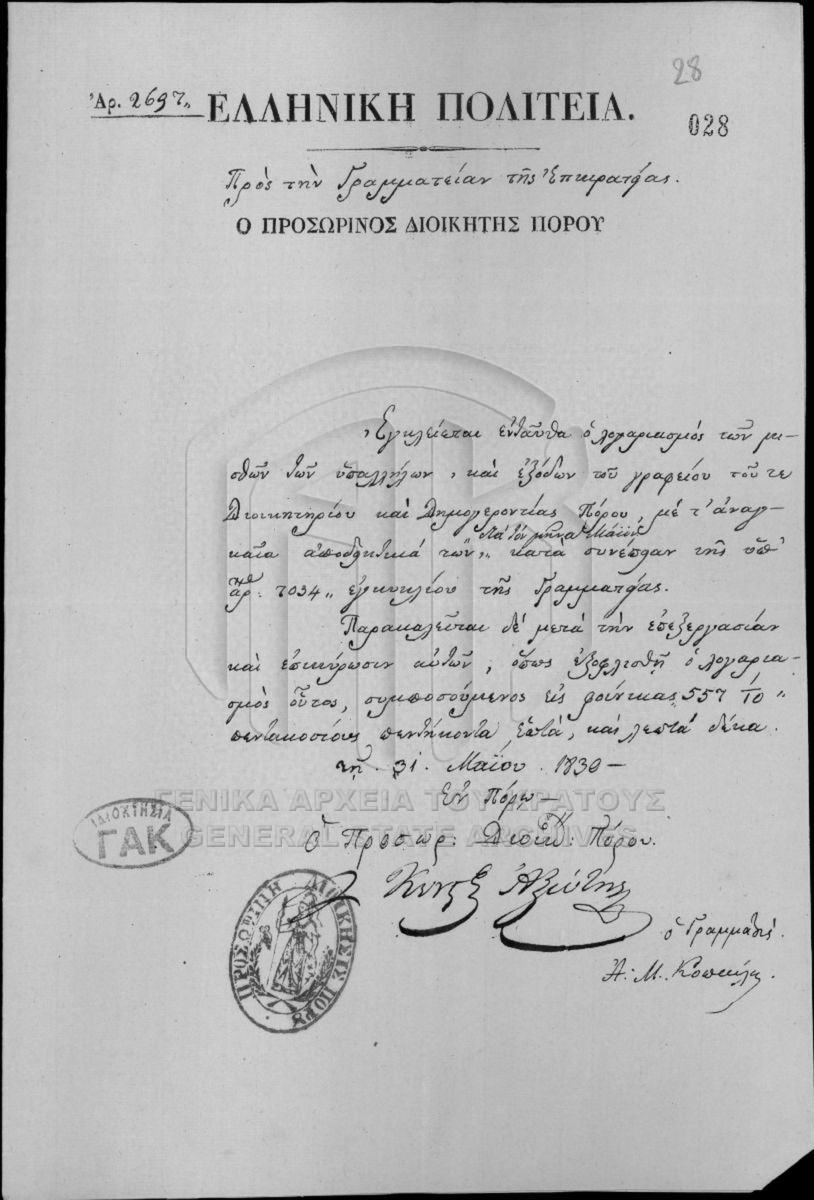 28
Ἀρ. 2697„ ΕΛΛΗΝΙΚΗ ΠΟΛΙΤΕΙΑ.
028
Πρὸς τὴν Γραμματείαν τῆς Ἐπικρατείας.
Ο ΠΡΟΣΩΡΙΝΟΣ ΔΙΟΙΚΗΤΗΣ ΠΟΡΟΥ
Ἐγκλείεται ἐνταῦθα ὁ λογαριασμὸς τῶν μι-
σθῶν τῶν ὑπαλλήλων, καὶ ἐξόδων τοῦ γραφείου τοῦ τε
Διοικητηρίου καὶ Δημογεροντίας Πόρου, μὲ τ' ἀναγ-
διὰ τὸν μῆνα Μάϊον
καῖα ἀποδεικτικά των„ κατὰ συνέπειαν τῆς ὑπ'
ἀρ: 7034„ ἐγκυκλίου τῆς Γραμματείας.
Παρακαλεῖται δὲ μετὰ τὴν ἐπεξεργασίαν
καὶ ἐπικύρωσιν αὐτῶν, ὅπως ἐξοφλισθῇ ὁ λογαρια-
σμὸς οὗτος, συμποσούμενος εἰς φοίνικας 557 10„
πεντακοσίους πεντήκοντα ἑπτά, καὶ λεπτὰ δέκα.
τῇ 31. Μαΐου 1830 –
Ἐν Πόρῳ –
ΓΕΝΙΚΑ ΑΡΧΕΙΑ ΤΟΥ ΚΡΑΤΟΥΣ
GENERAL STATE ARCHIVES
ΙΔΙΟΚΤΗΣΙΑ
ΓΑΚ
Ὁ Προσωρ: Διοικ: Πόρου.
Ἀξιώτης
ὁ Γραμματεὺς
Α. Μ.
ΠΡΟΣΩΡΙΝΗ ΔΙΟΙΚΗΣΙΣ ΠΟΡΟΥ